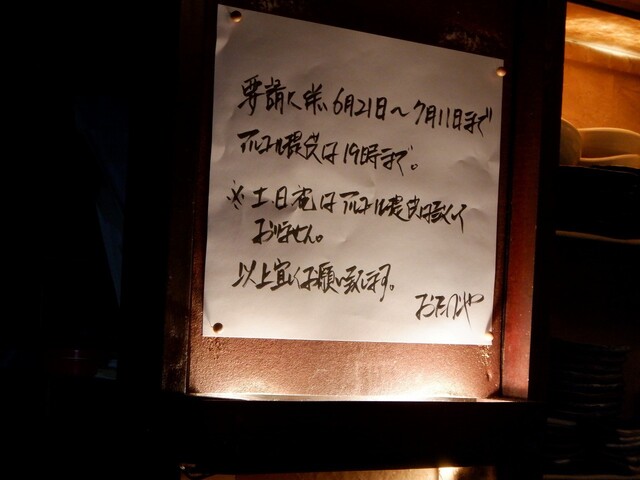 要請に伴い6月21日〜7月11日まで
アルコール提供は19時まで。
※土日祝はアルコール提供は致して
おりません。
以上宜しくお願い致します。
おだじや